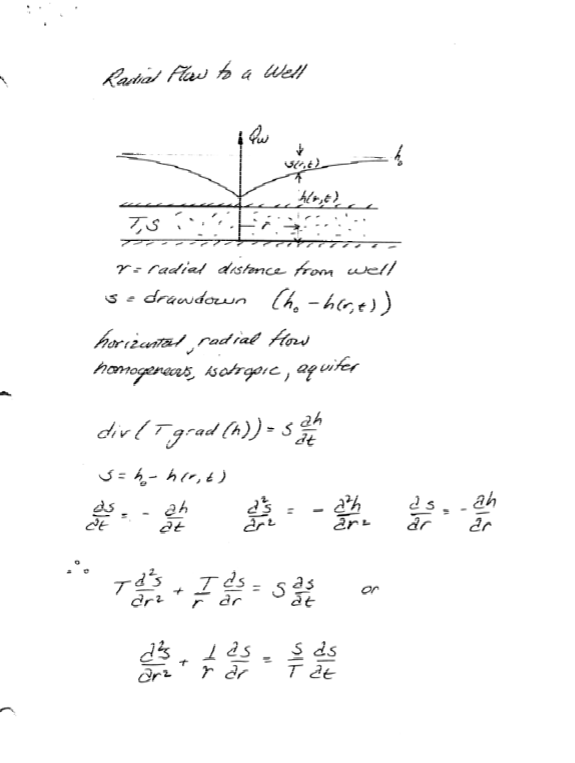 Radial Flow to a Well
Qw
s(r,t)
h₀
h(r,t)
T,S
r
r = radial distance from well
s = drawdown (h₀ - h(r,t))
horizontal, radial flow
homogeneous, isotropic, aquifer
div(T grad(h)) = S ∂h/∂t
s = h₀ - h(r,t)
∂s/∂t = - ∂h/∂t   ∂²s/∂r² = - ∂²h/∂r²   ∂s/∂r = - ∂h/∂r
∴
T ∂²s/∂r² + T/r ∂s/∂r = S ∂s/∂t   or
∂²s/∂r² + 1/r ∂s/∂r = S/T ∂s/∂t